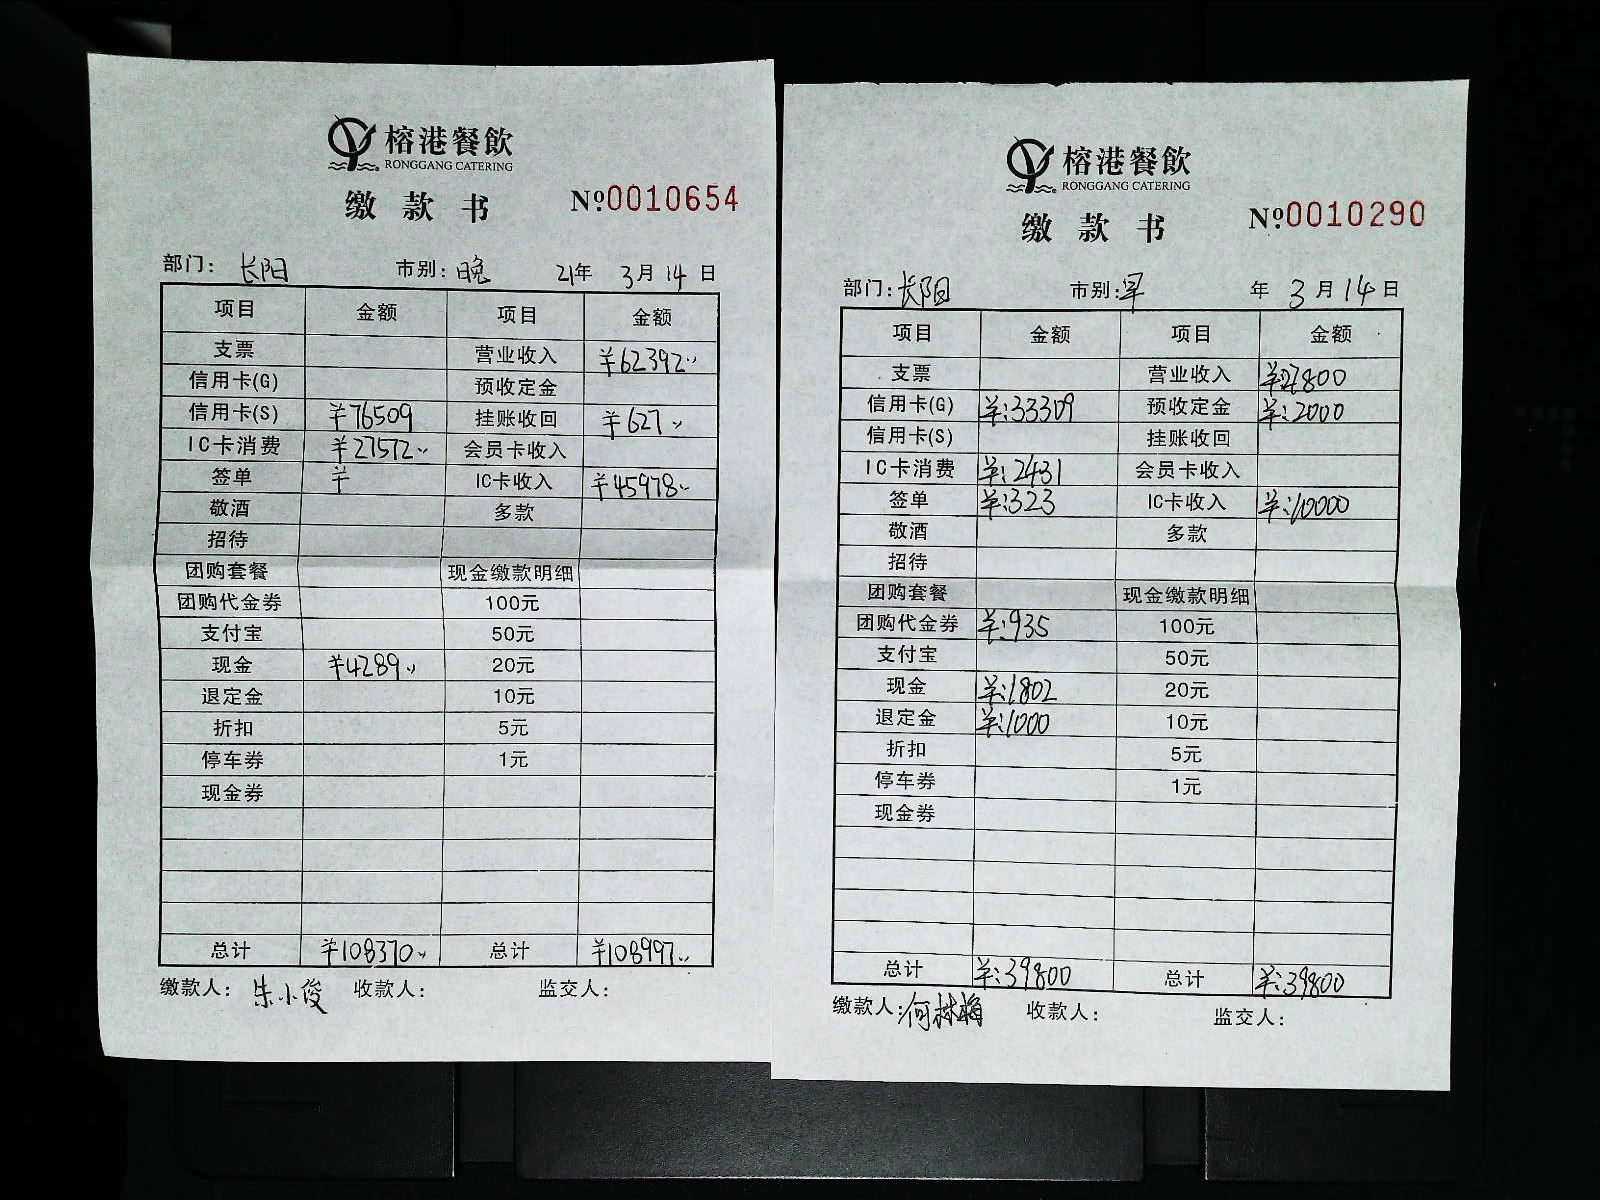 榕港餐飲
RONGGANG CATERING
缴款书 №0010654
部门: 长阳 市别: 晚 21年 3月 14日
项目 金额 项目 金额
支票 营业收入 ¥62392..
信用卡(G) 预收定金
信用卡(S) ¥76509 挂账收回 ¥627..
IC卡消费 ¥27572.. 会员卡收入
签单 ¥ IC卡收入 ¥45978..
敬酒 多款
招待
团购套餐 现金缴款明细
团购代金券 100元
支付宝 50元
现金 ¥4289.. 20元
退定金 10元
折扣 5元
停车券 1元
现金券
总计 ¥108370.. 总计 ¥108997..
缴款人: 朱小俊 收款人: 监交人:
榕港餐飲
RONGGANG CATERING
缴款书 №0010290
部门: 长阳 市别: 早 年 3月 14日
项目 金额 项目 金额
支票 营业收入 ¥:27800
信用卡(G) ¥:33309 预收定金 ¥:2000
信用卡(S) 挂账收回
IC卡消费 ¥:2431 会员卡收入
签单 ¥:323 IC卡收入 ¥:10000
敬酒 多款
招待
团购套餐 现金缴款明细
团购代金券 ¥:935 100元
支付宝 50元
现金 ¥:1802 20元
退定金 ¥:1000 10元
折扣 5元
停车券 1元
现金券
总计 ¥:39800 总计 ¥:39800
缴款人: 何林梅 收款人: 监交人: